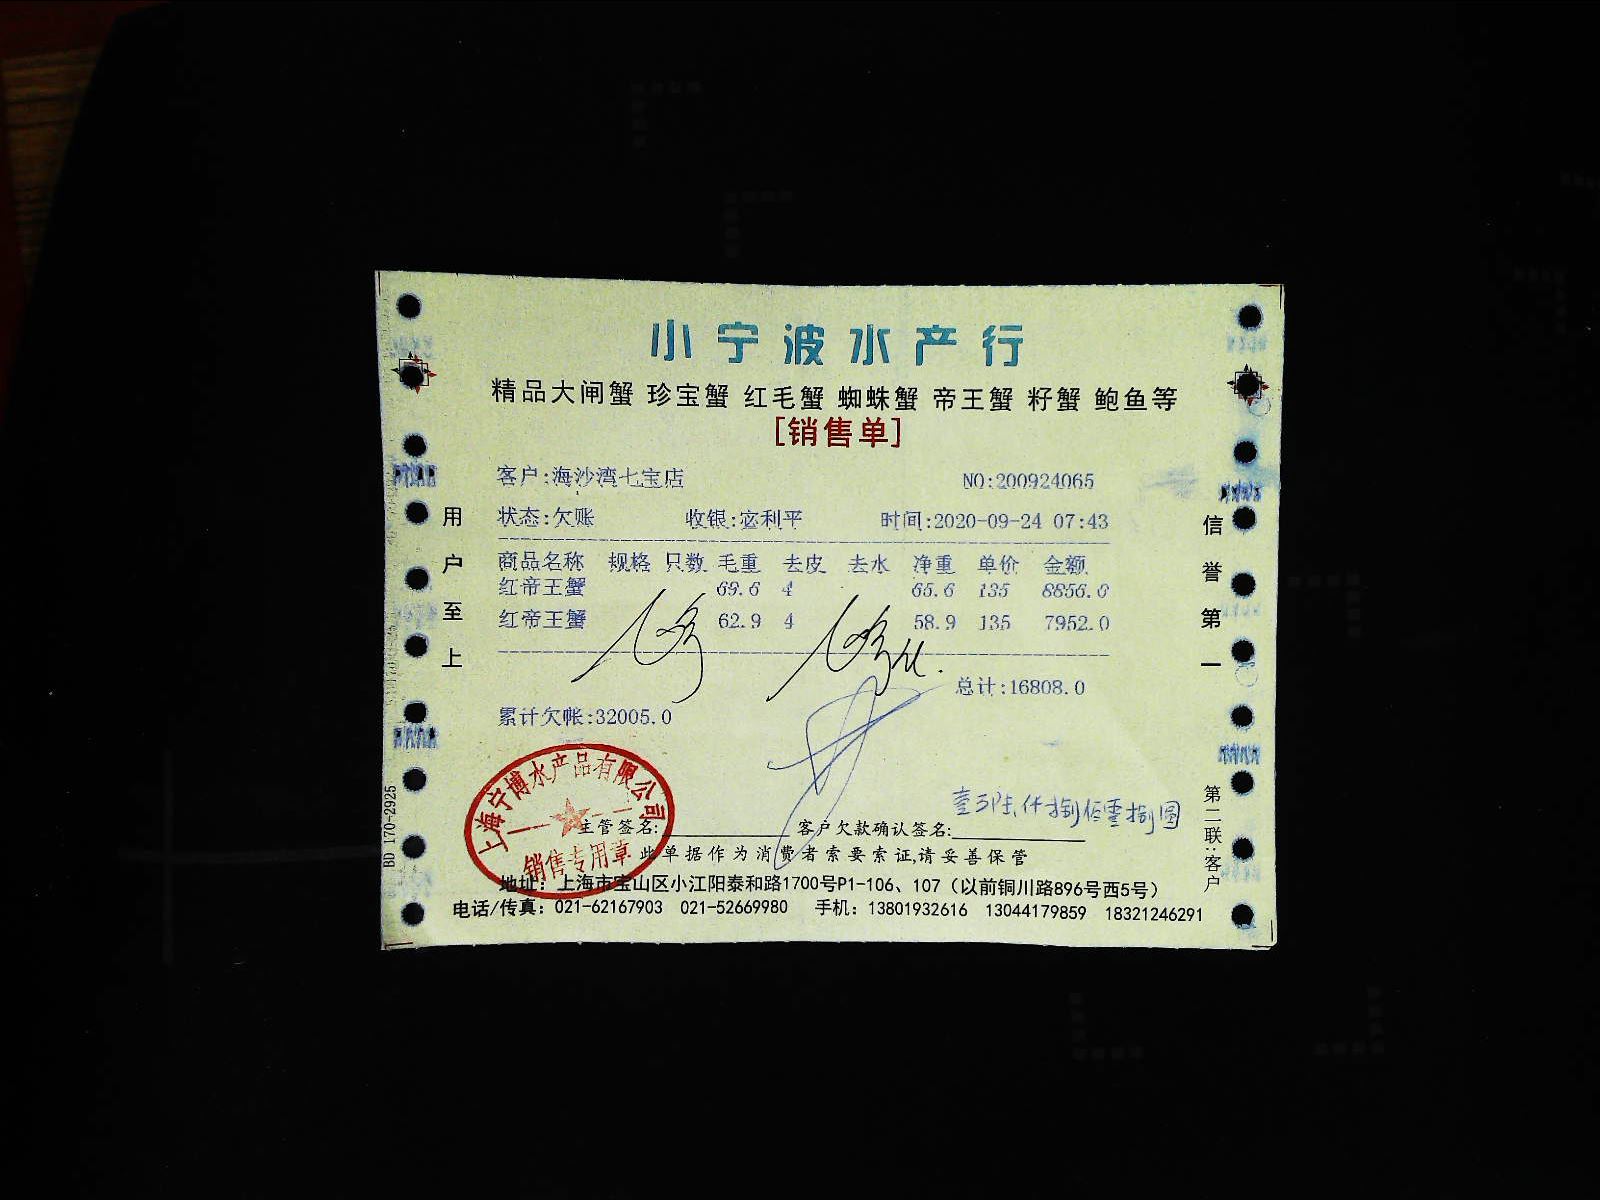 小宁波水产行
精品大闸蟹 珍宝蟹 红毛蟹 蜘蛛蟹 帝王蟹 籽蟹 鲍鱼等
[销售单]
客户:海沙湾七宝店 NO:200924065
状态:欠账 收银:宓利平 时间:2020-09-24 07:43
商品名称 规格 只数 毛重 去皮 去水 净重 单价 金额
红帝王蟹 69.6 4 65.6 135 8856.0
红帝王蟹 62.9 4 58.9 135 7952.0
总计:16808.0
累计欠帐:32005.0
用户至上
信誉第一
上海宁博水产品有限公司
销售专用章
仟捌佰零捌圆
主管签名: 客户欠款确认签名:
此单据作为消费者索要索证,请妥善保管
地址：上海市宝山区小江阳泰和路1700号P1-106、107（以前铜川路896号西5号）
电话/传真：021-62167903 021-52669980 手机：13801932616 13044179859 18321246291
第二联:客户
BD 170-2925